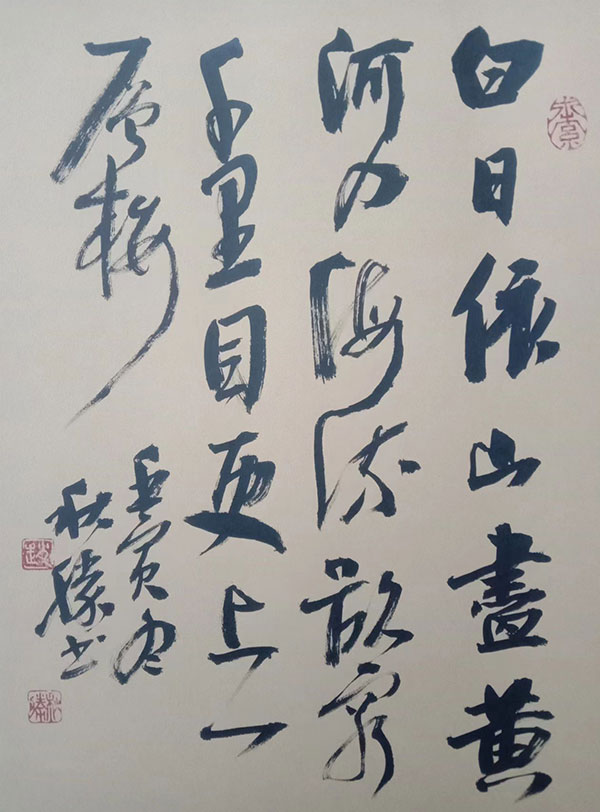 白日依山盡黄
河入海流欲窮
千里目更上一
層樓
壬寅冬
秋勝书